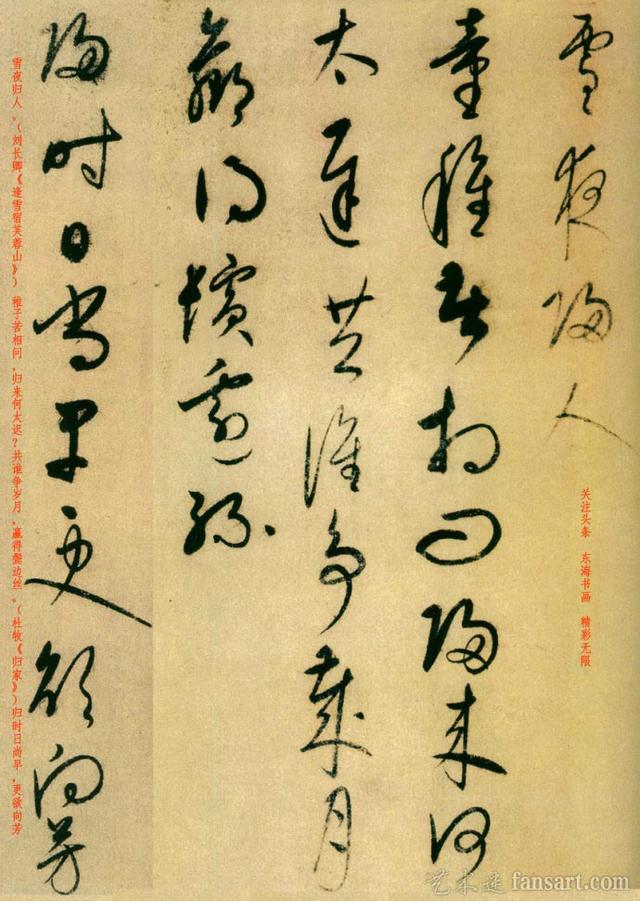 雪夜歸人
童稚苦相問歸來何
太遲共誰爭歲月
贏得鬢邊絲
歸時日尚早更欲向芳
关注头条 东海书画 精彩无限
雪夜归人。(刘长卿《逢雪宿芙蓉山》) 稚子苦相问,归来何太迟?共谁争岁月,赢得鬓边丝。(杜牧《归家》)归时日尚早,更欲向芳
艺术迷 fansart.com